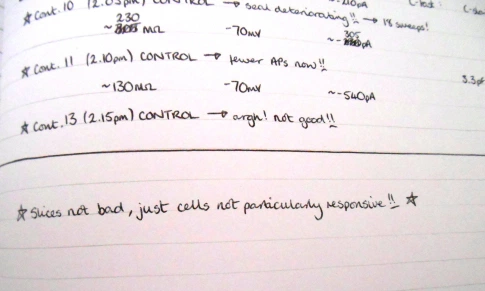 ☆ Cont. 10 (2.05pm) CONTROL → seal deteriorating!! → 18 sweeps!
230
~ MΩ -70mV ~-305pA
☆ Cont. 11 (2.10pm) CONTROL → fewer APs now!!
~130MΩ -70mV ~-540pA
3.3p
☆ Cont. 13 (2.15pm) CONTROL → argh! not good!!
☆ Slices not bad, just cells not particularly responsive!! ☆